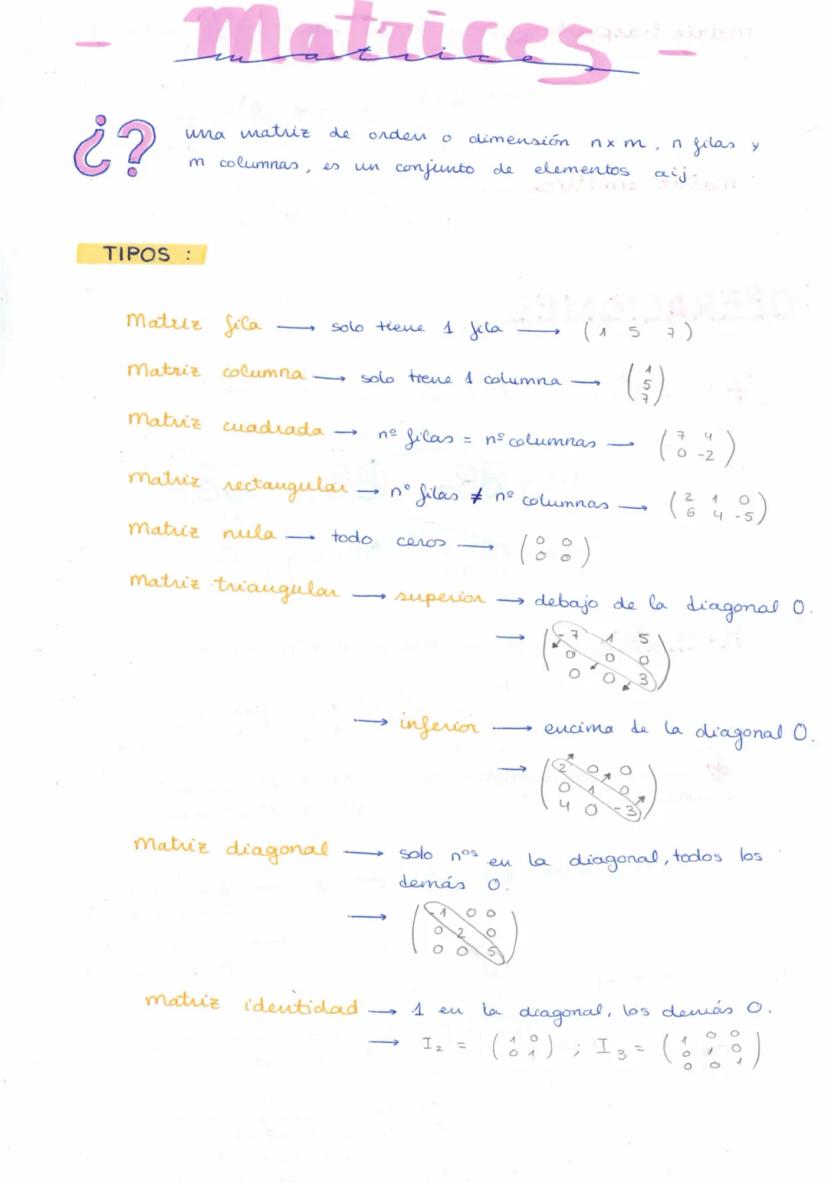 - Matrices -
matrices
¿? una matriz de orden o dimensión n x m, n filas y
m columnas, es un conjunto de elementos aij.
TIPOS :
Matriz fila → solo tiene 1 fila → (1 5 7)
Matriz columna → solo tiene 1 columna → (1
5
7)
Matriz cuadrada → nº filas = nº columnas → (7 4
0 -2)
Matriz rectangular → nº filas ≠ nº columnas → (2 1 0
6 4 -5)
Matriz nula → todo ceros → (0 0
0 0)
Matriz triangular → superior → debajo de la diagonal 0.
→ (-7 1 5
0 0 0
0 0 3)
→ inferior → encima de la diagonal 0.
→ (2 0 0
0 1 0
4 0 -3)
Matriz diagonal → solo nos en la diagonal, todos los
demás 0.
→ (-1 0 0
0 2 0
0 0 5)
matriz identidad → 1 en la diagonal, los demás 0.
→ I2 = (1 0
0 1) ; I3 = (1 0 0
0 1 0
0 0 1)